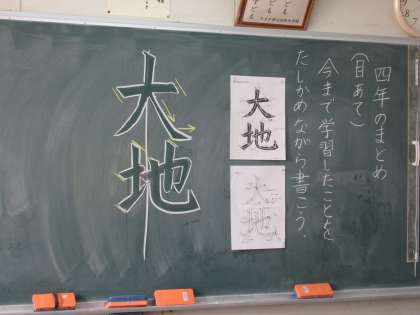 四年のまとめ
(目あて)
今まで学習したことを
たしかめながら書こう.
大地
大地
大地